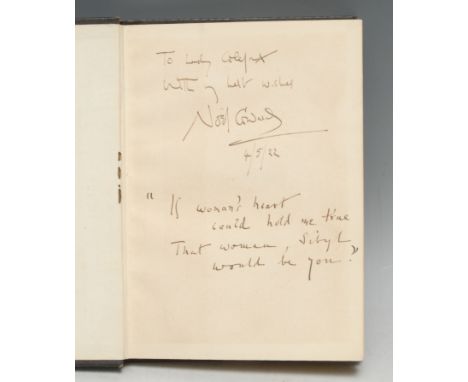 To Lady Colefax
With my best wishes
Noël Coward
4/5/22
"If woman's heart
could hold me true
That woman, Sibyl
would be you."